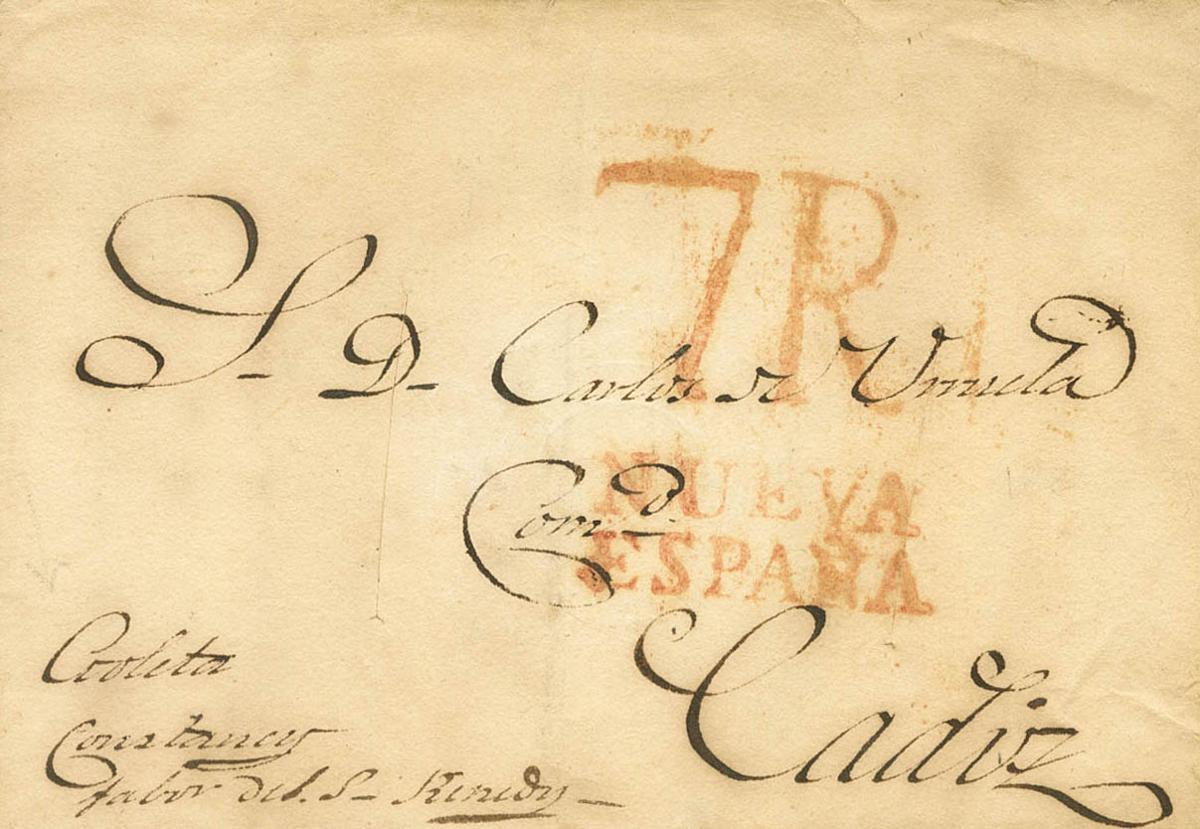 7R
Sr. Dn. Carlos de Urruela
NUEVA
ESPAÑA
Cadiz
Goleta
Constancy
fabor del Sr. Kenedy